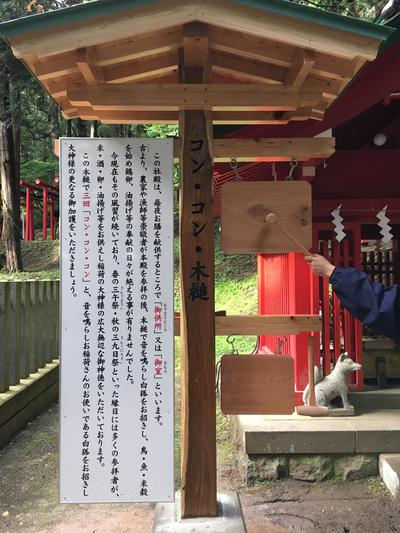 コン・コン・木槌
この社殿は、毎夜お膳を献供するところで「御供所」又は「御室」といいます。
古より、農家や漁師等崇敬者が本殿を参拝の後、木槌で音を鳴らし白狐をお招きし、鳥・魚・米穀
を始め鶏卵、油揚げ等の奉献の日々が絶える事が有りませんでした。
今現在もその風習が続いており、春の三午祭・秋の三九日祭といった縁日には多くの参拝者が、
米・酒・卵・油揚げ等をお供えし稲荷の大神様の広大無辺な御神徳をいただいております。
この木槌で三回「コン・コン・コン」と、音を鳴らしお稲荷さんのお使いである白狐をお招きし
大神様の更なる御加護をいただきましょう。